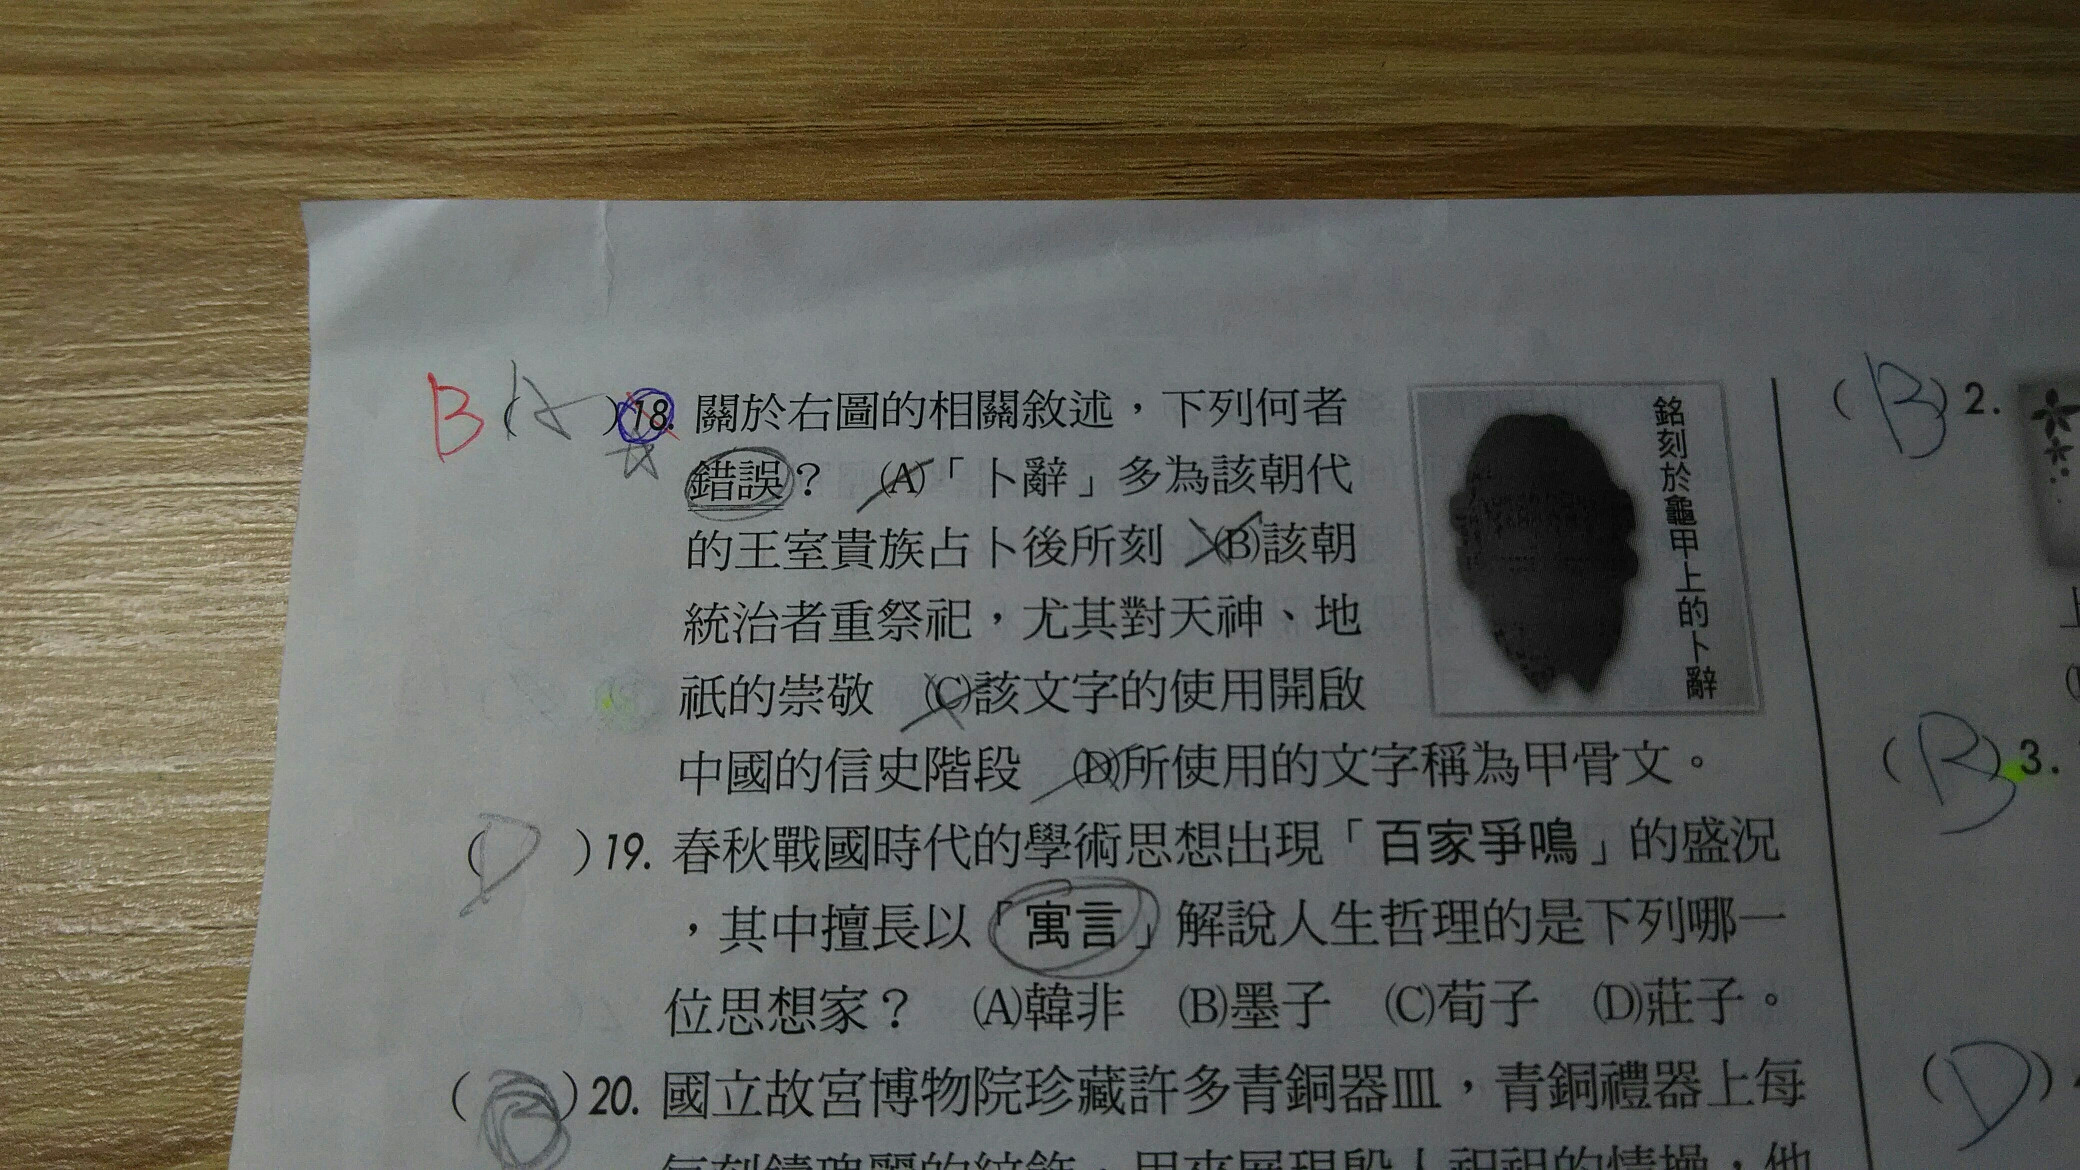 B（A）18. 關於右圖的相關敘述，下列何者
錯誤？　(A)「卜辭」多為該朝代
的王室貴族占卜後所刻　(B)該朝
統治者重祭祀，尤其對天神、地
祇的崇敬　(C)該文字的使用開啟
中國的信史階段　(D)所使用的文字稱為甲骨文。
銘刻於龜甲上的卜辭
（D）19. 春秋戰國時代的學術思想出現「百家爭鳴」的盛況
，其中擅長以「寓言」解說人生哲理的是下列哪一
位思想家？　(A)韓非　(B)墨子　(C)荀子　(D)莊子。
（B）20. 國立故宮博物院珍藏許多青銅器皿，青銅禮器上每
（B）2.
（B）3.
（D）